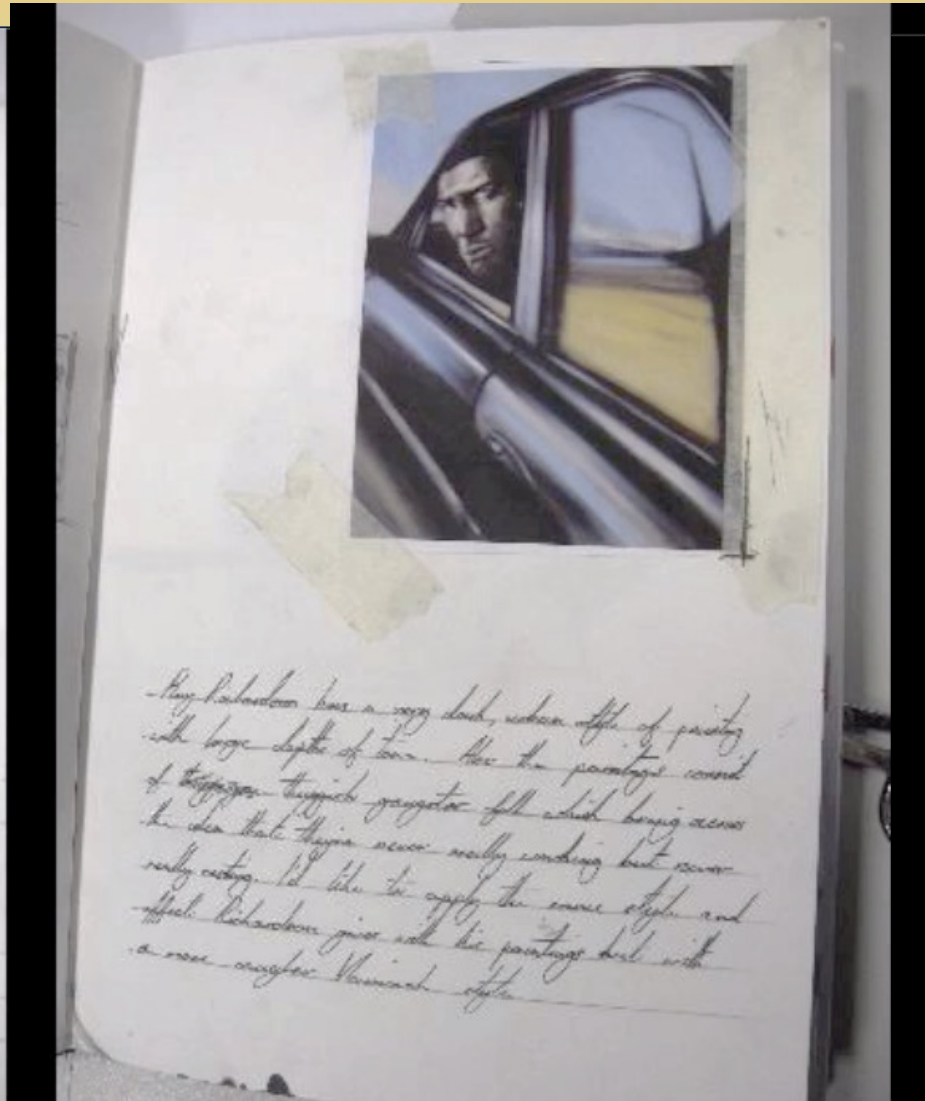 - Ray Richardson has a very dark, urban style of painting
with large depths of tone. Also the paintings consist
of thuggish gangster folk which bring across
the idea that they're never really working but never
really resting. I'd like to apply the same style and
effect Richardson gives with his paintings but with
a more style